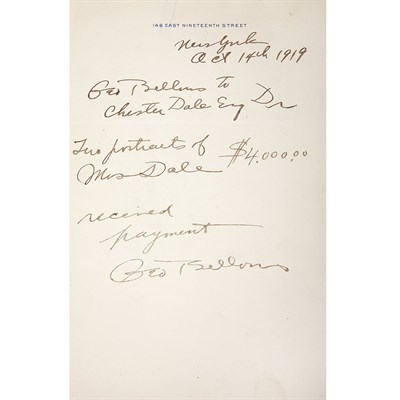 146 EAST NINETEENTH STREET
New York
Oct 14th 1919
Geo Bellows to
Chester Dale Esq Dr
Two portraits of
Mrs Dale $4.000.00
received
payment
Geo Bellows